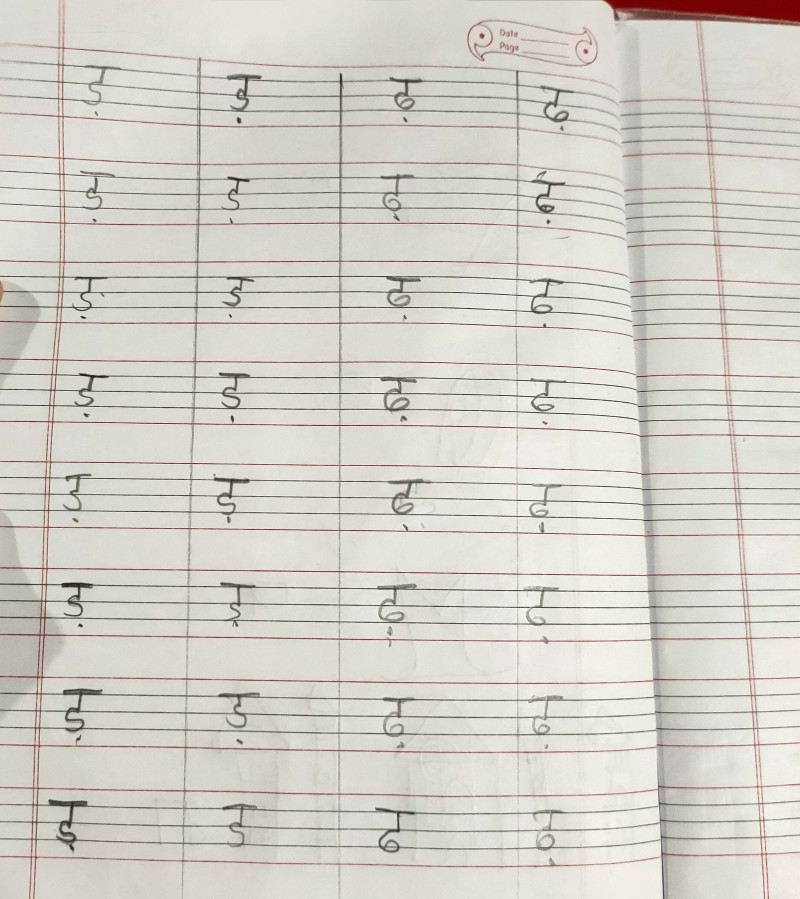 Date
Page
ड़ ड़ ढ़ ढ़
ड़ ड़ ढ़ ढ़
ड़ ड़ ढ़ ढ़
ड़ ड़ ढ़ ढ़
ड़ ड़ ढ़ ढ़
ड़ ड़ ढ़ ढ़
ड़ ड़ ढ़ ढ़
ड़ ड ढ ढ़